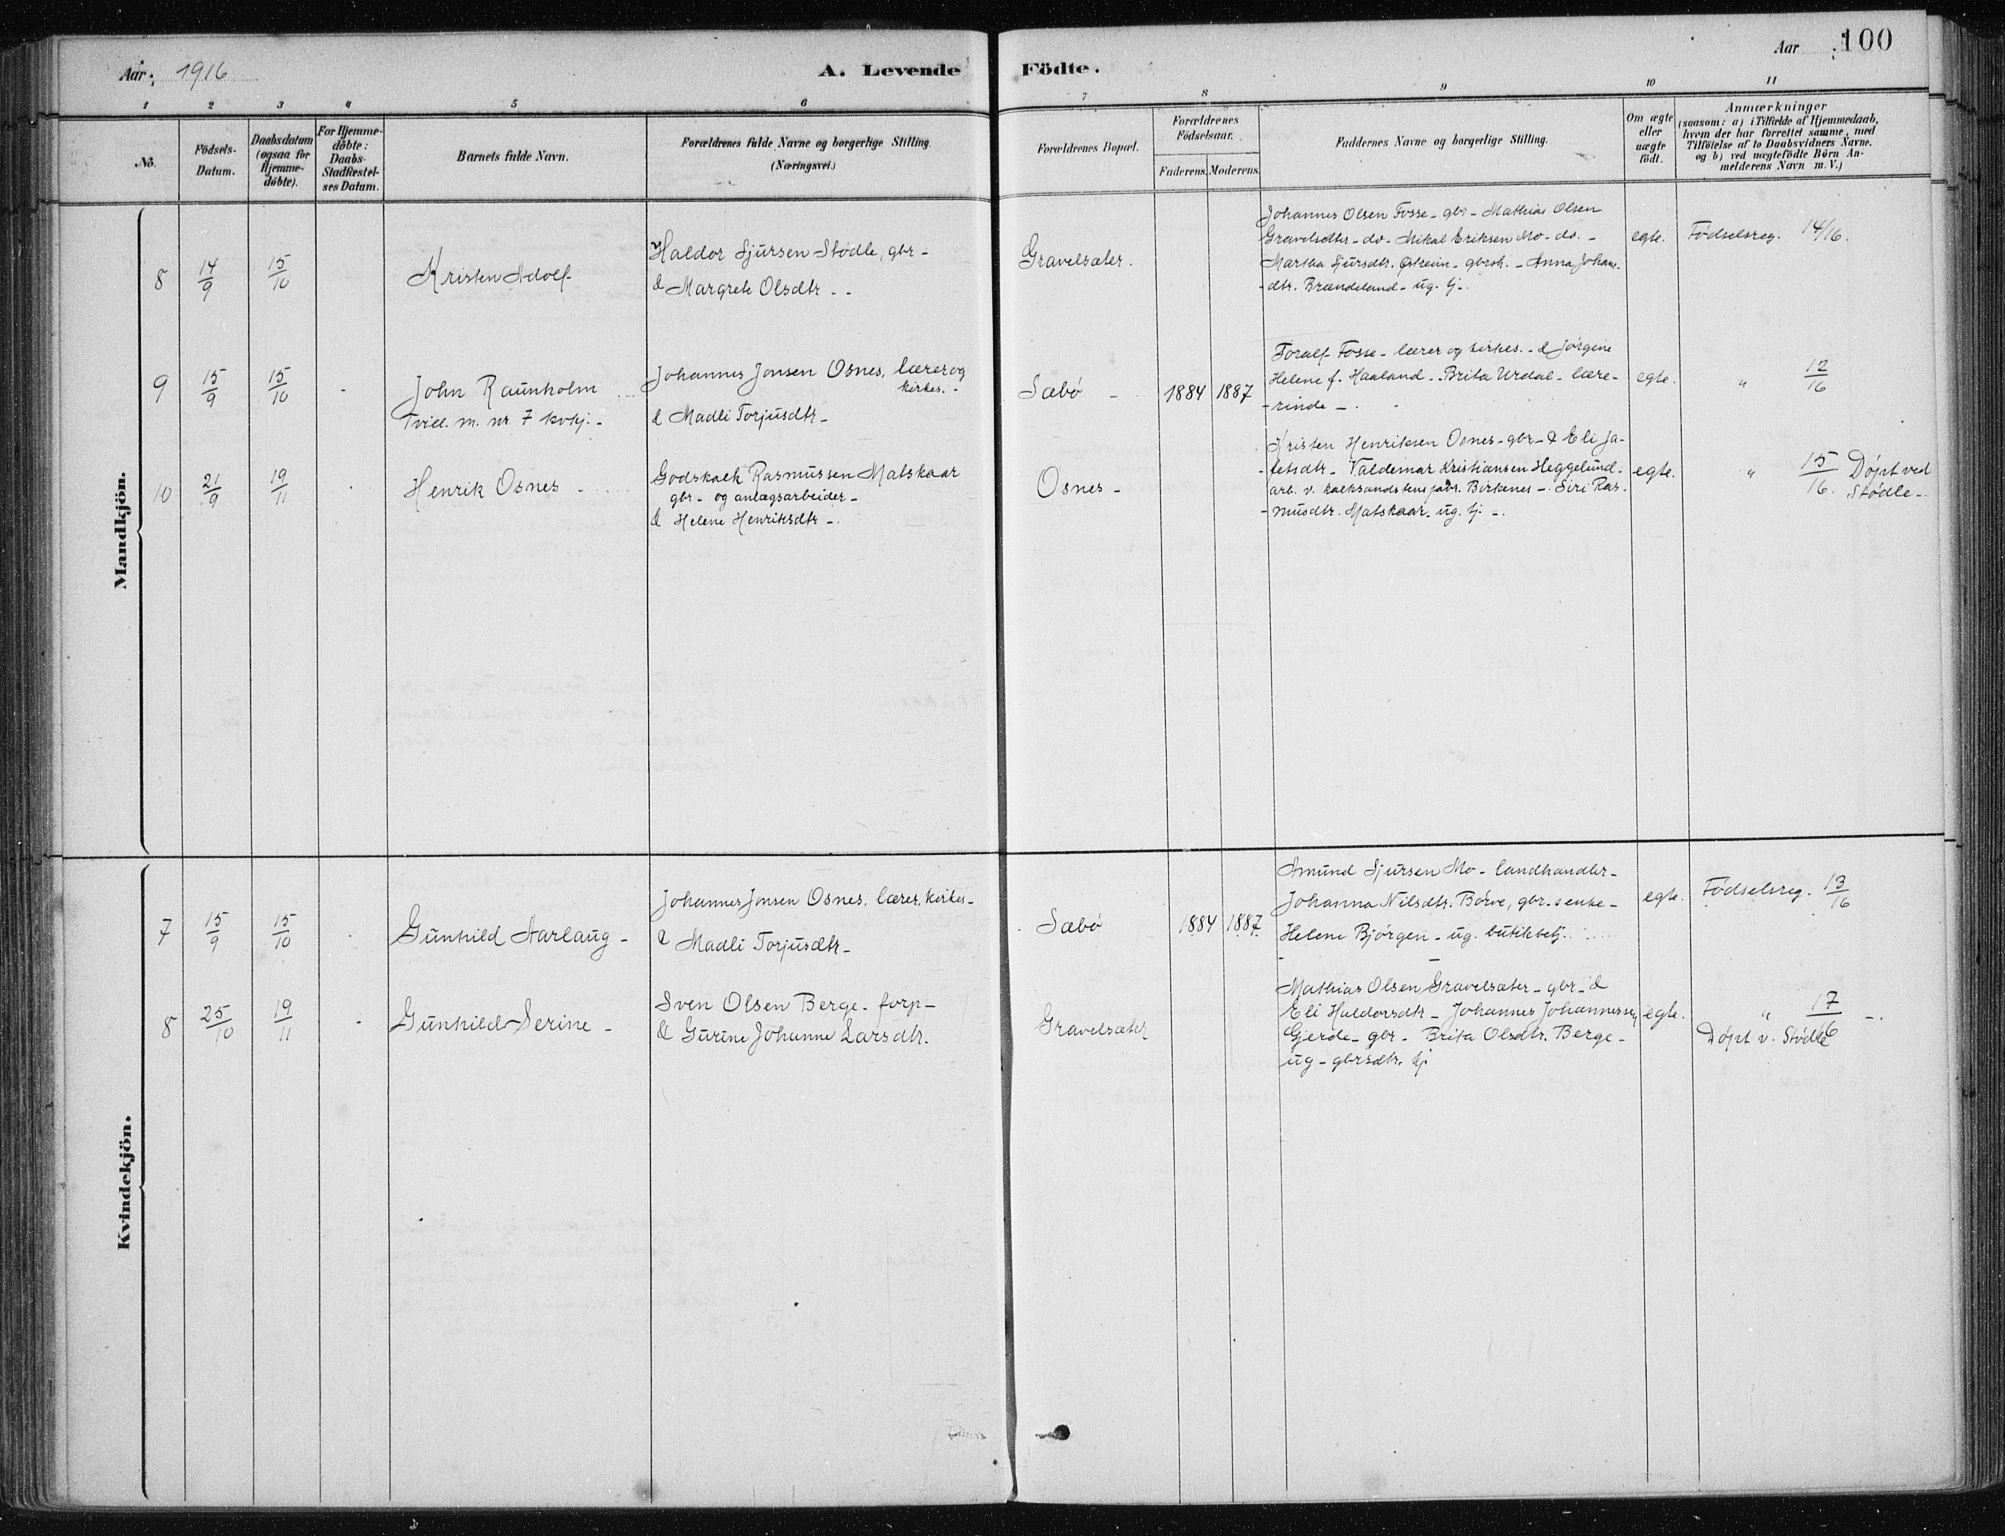 Aar: 1916
A. Levende Födte.
Aar
100
1 2 3 4 5 6 7 8 9 10 11
No.
Födsels-Datum.
Daabsdatum (ogsaa for Hjemme-döbte).
For Hjemme-döbte: Daabs-Stadfæstel-ses Datum.
Barnets fulde Navn.
Forældrenes fulde Navne og borgerlige Stilling. (Næringsvei.)
Forældrenes Bopæl.
Forældrenes Födselsaar.
Faderens. Moderens.
Faddernes Navne og borgerlige Stilling.
Om ægte eller uægte födt.
Anmærkninger
(saasom: a) i Tilfælde af Hjemmedaab,
hvem der har forrettet samme, med
Tilföielse af to Daabsvidners Navne.
og b) ved uægtefödte Börn An-
melderens Navn m. V.)
Mandkjön.
8 14/9 15/10 Kristen Adolf
Haldor Sjursen Stødle, gbr -
& Margrete Olsdtr - -
Gravelsæter.
Johannes Olsen Fosse - gbr - Mathias Olsen
Gravelsæter - do - Mikal Eriksen Mo - do. -
Martha Sjursdtr. Østheim - gbrsh. - Anna Johans-
-dtr. Brændeland - ug. tj -.
egte. Fødselsreg. 14/16.
9 15/9 15/10 - John Raunholm
Tvill. m. nr 7 kvkj. -
Johannes Jonsen Osnes, lærer og
kirkes. -
& Madli Torjusdtr -
Sæbø - 1884 1887
Toralf Fosse - lærer og kirkes. - & Jørgine
Helene f. Haaland - Brita Urdal - lære-
-rinde -.
egte. " 12/16
10 21/9 19/11 Henrik Osnes -
Godskalk Rasmussen Matskaar
gbr - og anlægsarbeider -
& Helene Henriksdtr -.
Osnes -
Kristen Henriksen Osnes - gbr - & Eli Ja-
-fetsdtr - Valdemar Kristiansen Heggelund -
arb. v. kalksandstensfabr. Birkenes - Siri Ras-
-musdtr. Matskaar - ug. tj -.
egte. " 15/16. Døpt ved
Stødle -
Kvindekjön.
7 15/9 15/10 Gunhild Aarlaug -
Johannes Jonsen Osnes, lærer, kirkes -
& Madli Torjusdtr -
Sæbø 1884 1887.
Amund Sjursen Mo - landhandler -
Johanna Nilsdtr. Børve, gbr. - enke -
Helene Bjørgen - ug. butikbetj.
egte. Fødselsreg. 13/16
8 25/10 19/11 - Gunhild Serine -
Sven Olsen Berge - forp -
& Gurine Johanne Larsdtr.
Gravelsæter
Mathias Olsen Gravelsæter - gbr - &
Eli Haldorsdtr - Johannes Johannessen
Gjerde - gbr - Brita Olsdtr. Berge -
ug - gbrsdtr. tj
egte. " 17/16 -.
Døpt v. Stødle